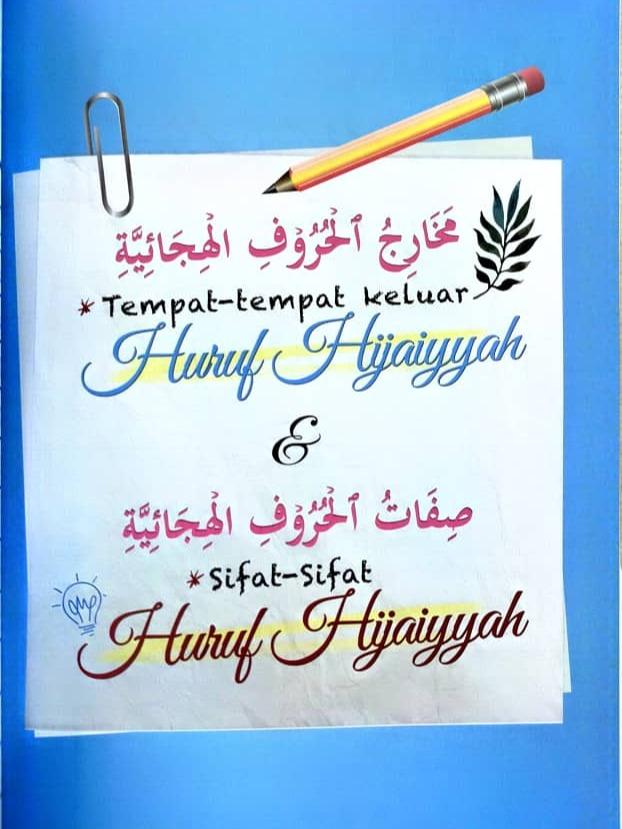 مَخَارِجُ ٱلْحُرُوْفِ الْهِجَائِيَّةِ
* Tempat-tempat keluar
Huruf Hijaiyyah
&
صِفَاتُ ٱلْحُرُوْفِ الْهِجَائِيَّةِ
* Sifat-Sifat
Huruf Hijaiyyah